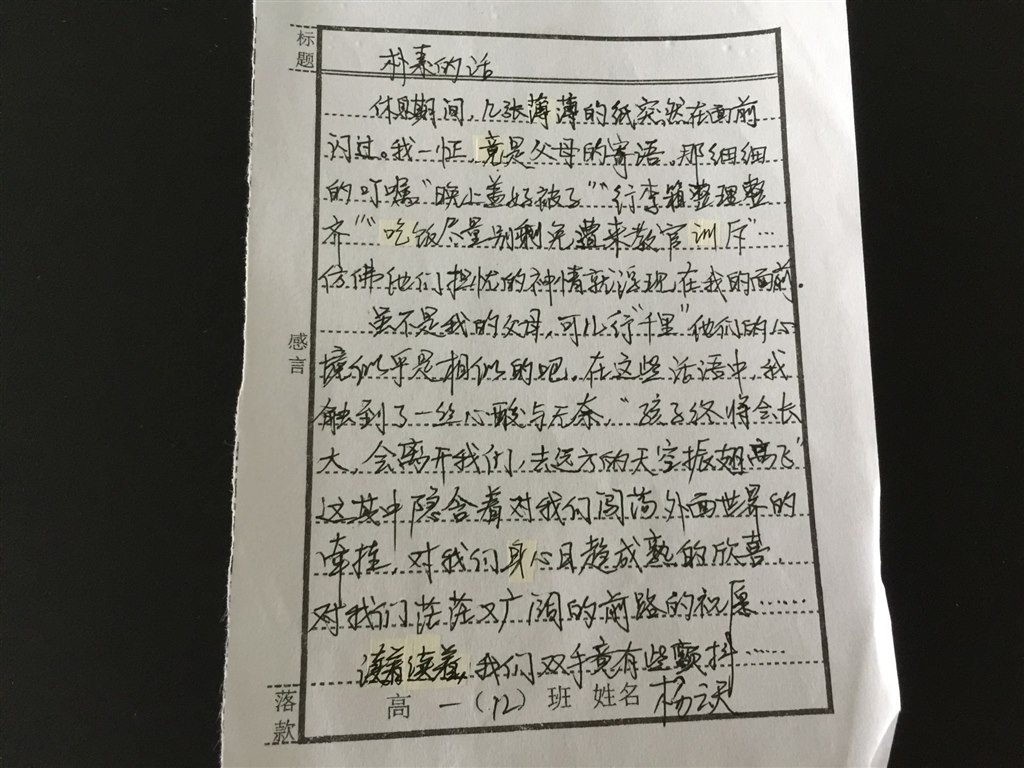 标题
朴素的话
休息期间，几张薄薄的纸突然在面前
闪过。我一怔，竟是父母的寄语。那细细
的叮嘱“晚上盖好被子”“行李箱整理整
齐”“吃饭尽量别剩免遭来教官训斥”…
仿佛他们担忧的神情就浮现在我的面前。
虽不是我的父母，可儿行“千里”他们的心
境似乎是相似的吧。在这些话语中，我
触到了一丝心酸与无奈。“孩子终将会长
大，会离开我们，去远方的天空振翅高飞”
这其中隐含着对我们闯荡外面世界的
牵挂，对我们身心日趋成熟的欣喜，
对我们茫茫又广阔的前路的祝愿……
读着读着，我们双手竟有些颤抖……
感言
落款
高一（12）班 姓名 杨